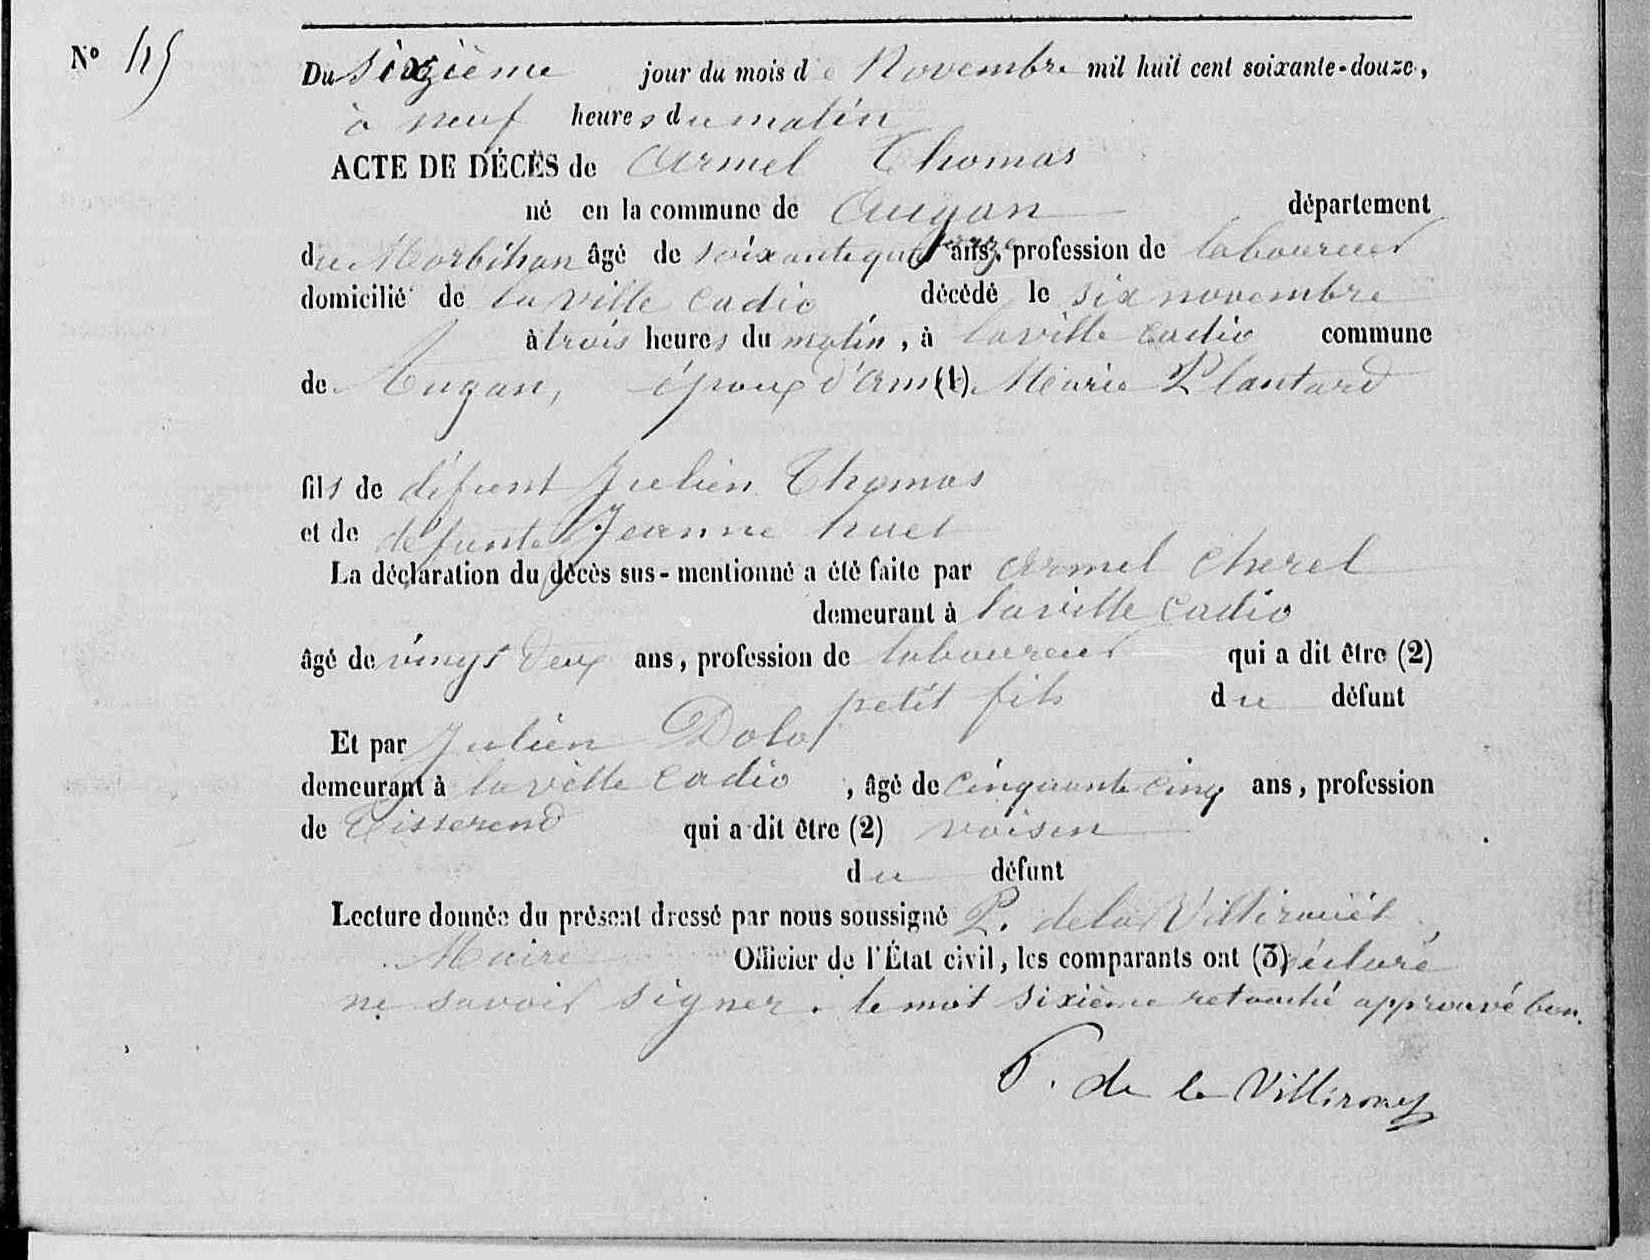 N° 45
Du sixième jour du mois de Novembre mil huit cent soixante-douze,
à neuf heures du matin
ACTE DE DÉCÈS de Armel Thomas
né en la commune de Augan département
du Morbihan âgé de soixante quatorze ans, profession de laboureur
domicilié de la ville Cadio décédé le six novembre
à trois heures du matin, à la ville Cadio commune
de Augan, époux d'Armel (1) Marie Plantard
fils de défunt Julien Thomas
et de défunte Jeanne huet
La déclaration du décès sus-mentionné a été faite par Armel Cherel
demeurant à la ville Cadio
âgé de vingt deux ans, profession de laboureur qui a dit être (2)
petit fils du défunt
Et par Julien Dolo
demeurant à la ville Cadio, âgé de cinquante cinq ans, profession
de Tisserend qui a dit être (2) voisin
du défunt
Lecture donnée du présent dressé par nous soussigné P. de la Villirouët,
Maire Officier de l'État civil, les comparants ont (3) déclaré
ne savoir signer. le mot sixième retouché approuvé bon.
P. de la Villirouet